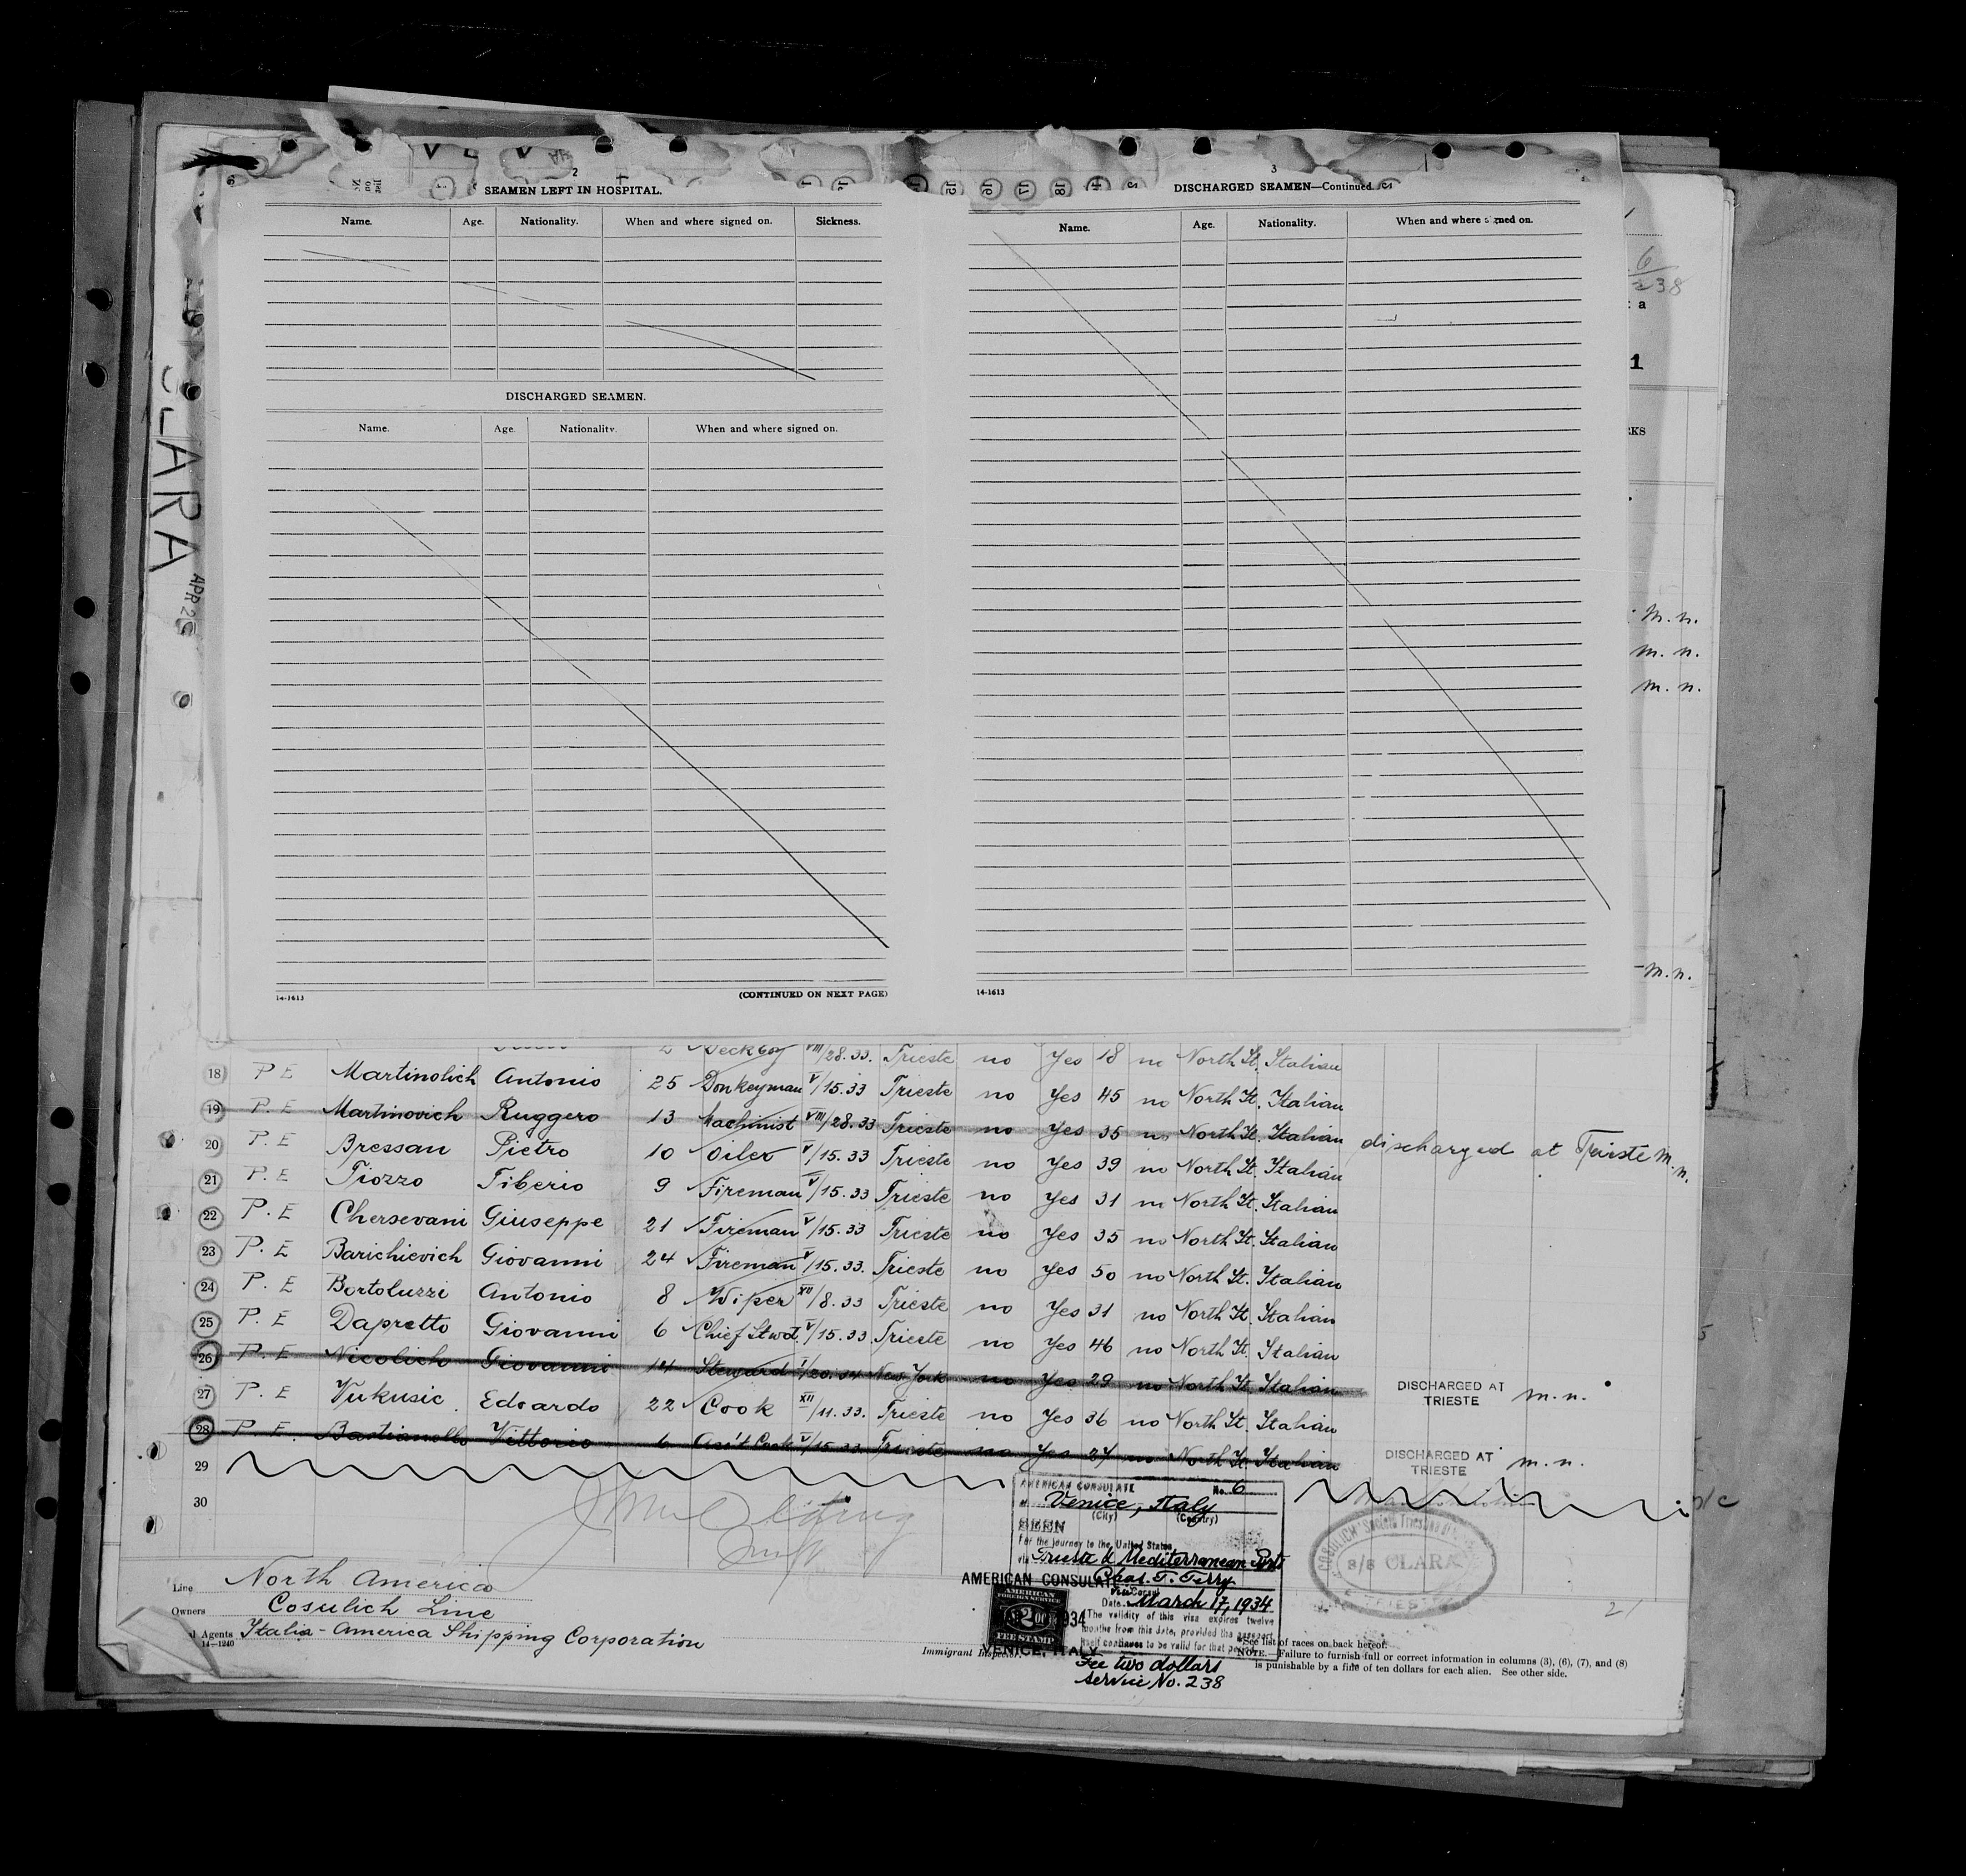 2
SEAMEN LEFT IN HOSPITAL.
Name. Age. Nationality. When and where signed on. Sickness.
DISCHARGED SEAMEN.
Name. Age. Nationality. When and where signed on.
14-1613 (CONTINUED ON NEXT PAGE)
3
DISCHARGED SEAMEN—Continued.
Name. Age. Nationality. When and where signed on.
14-1613
CLARA
APR 25
6
238
1
m. n.
m. n.
m. n.
m.n.
Deckboy VIII/28.33. Trieste no Yes 18 no North It. Italian
18 P E Martinolich Antonio 25 Donkeyman V/15.33 Trieste no Yes 45 no North It. Italian
19 P. E Martinovich Ruggero 13 Machinist VIII/28.33 Trieste no Yes 35 no North It. Italian discharged at Trieste m.n.
20 P. E Bressan Pietro 10 Oiler V/15.33 Trieste no Yes 39 no North It. Italian
21 P. E Tiozzo Tiberio 9 Fireman V/15.33 Trieste no Yes 31 no North It. Italian
22 P. E Chersevani Giuseppe 21 Fireman V/15.33 Trieste no Yes 35 no North It. Italian
23 P. E Barichievich Giovanni 24 Fireman V/15.33. Trieste no Yes 50 no North It. Italian
24 P. E Bortoluzzi Antonio 8 Wiper XII/8.33 Trieste no Yes 31 no North It. Italian
25 P. E Dapretto Giovanni 6 Chief Stwd. V/15.33. Trieste no Yes 46 no North It. Italian
26 P. E Nicolich Giovanni 14 Steward I/20.34 New York no Yes 29 no North It. Italian DISCHARGED AT TRIESTE m.n.
27 P. E Vukusic Edoardo 22 Cook XII/11.33. Trieste no Yes 36 no North It. Italian
28 P. E. Bastianello Vittorio 6 Ass't Cook V/15.33. Trieste no Yes 27 no North It. Italian DISCHARGED AT TRIESTE m.n.
29
30
AMERICAN CONSULATE No. 6
at Venice, Italy
(City) (Country)
SEEN
For the journey to the United States
via Trieste & Mediterranean Ports
Chas. T. Terry
Vice Consul
Date March 17, 1934
The validity of this visa expires twelve
months from this date, provided the passport
itself continues to be valid for that period
AMERICAN CONSULATE
AMERICAN
FOREIGN SERVICE
2 00
FEE STAMP
1934
VENICE, ITALY
Fee two dollars
Service No. 238
COSULICH
s/s CLARA
TRIESTE
21
Line North America
Owners Cosulich Line
Agents Italia - America Shipping Corporation
14—1240
Immigrant Inspector.
*See list of races on back hereof.
NOTE.—Failure to furnish full or correct information in columns (3), (6), (7), and (8)
is punishable by a fine of ten dollars for each alien. See other side.